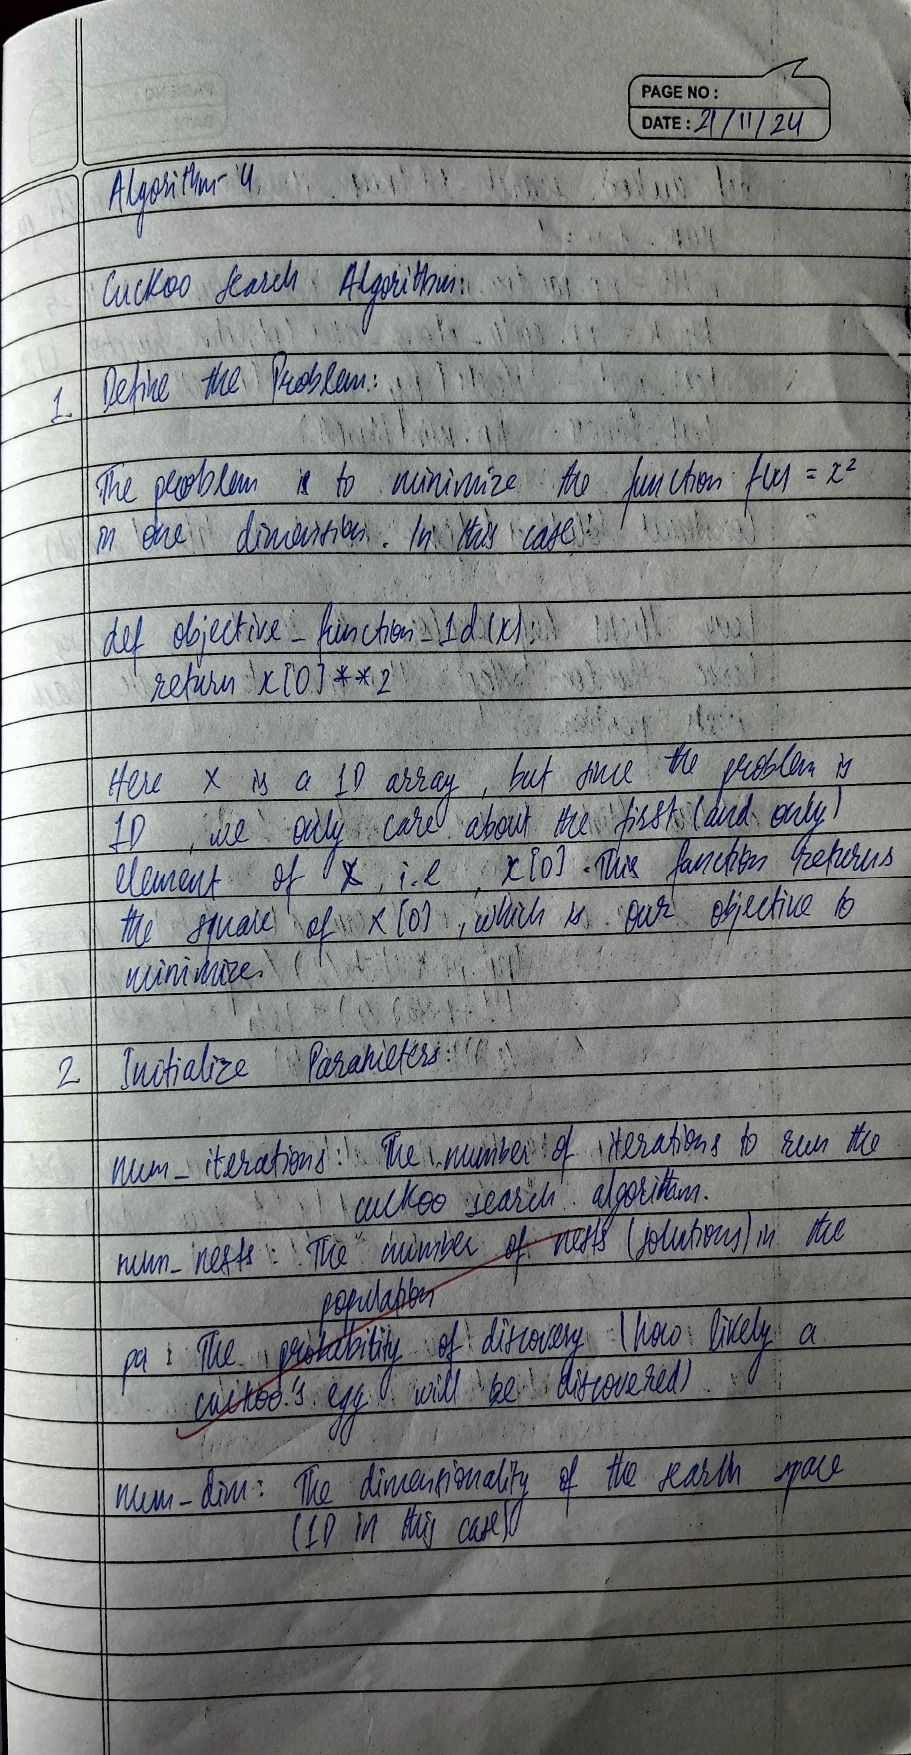 PAGE NO :
DATE : 21/11/24
Algorithm-4
Cuckoo search Algorithm:
1. Define the Problem:
The problem is to minimize the function f(x) = x²
in one dimension. In this case:
def objective_function_1d(x):
return x[0]**2
Here x is a 1D array, but since the problem is
1D, we only care about the first (and only)
element of x, i.e, x[0]. This function returns
the square of x[0], which is our objective to
minimize.
2 Initialize Parameters:
num_iterations: The number of iterations to run the
cuckoo search algorithm.
num_nests: The number of nests (solutions) in the
population
pa: The probability of discovery (how likely a
cuckoo's egg will be discovered)
num_dim: The dimensionality of the search space
(1D in this case)